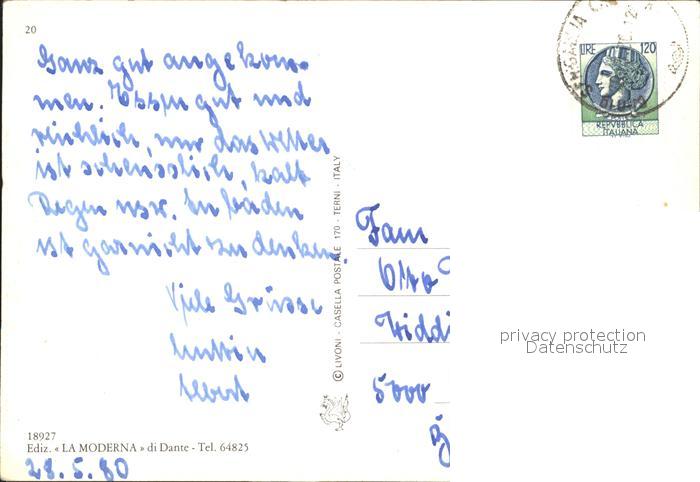 20
Ganz gut angekom-
men. Essen gut und
reichlich, nur das Wetter
ist scheusslich, kalt
Regen usw. An baden
ist garnicht zu denken.
Viele Grüsse
Albert
18927
Ediz. « LA MODERNA » di Dante - Tel. 64825
28.5.80
© LIVONI - CASELLA POSTALE 170 - TERNI - ITALY
LIRE 120
REPVBBLICA
ITALIANA
Fam
Otto
Widdi
5000
privacy protection
Datenschutz